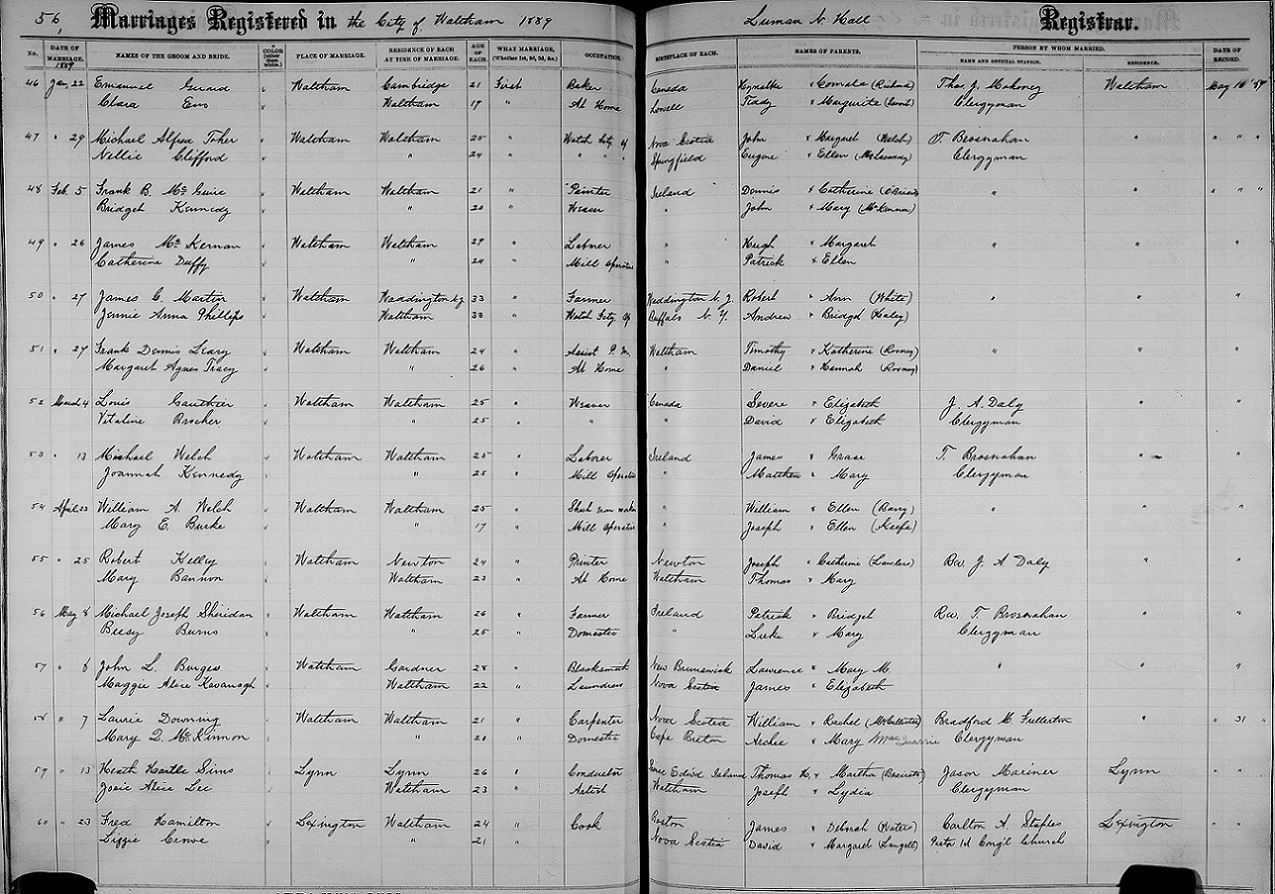 56, Marriages Registered in the City of Waltham 1889 Luman N. Hall Registrar.
No. DATE OF MARRIAGE. 1889 NAMES OF THE GROOM AND BRIDE. COLOR (other than white.) PLACE OF MARRIAGE. RESIDENCE OF EACH AT TIME OF MARRIAGE. AGE OF EACH. WHAT MARRIAGE, (Whether 1st, 2d, 3d, &c.) OCCUPATION. BIRTHPLACE OF EACH. NAMES OF PARENTS. PERSON BY WHOM MARRIED. NAME AND OFFICIAL STATION. RESIDENCE. DATE OF RECORD.
46 Jan. 22 Emanuel Guard Waltham Cambridge 21 First Baker Canada Thos. J. Mahoney Waltham May 10 '89
Clara Eno Waltham 17 At Home Lowell Teddy & Margurite Clergyman
47 " 29 Michael Alfred Toher Waltham Waltham 25 " Watch Fcty Op Nova Scotia John & Margaret (Welch) T. Brosnahan " " " "
Nellie Clifford " 24 " " " " Springfield Eugene & Ellen Clergyman
48 Feb 5 Frank B. McGuire Waltham Waltham 21 " Painter Ireland Dennis & Catherine (O'Brien) " " " " "
Bridget Kennedy " 20 " Weaver " John & Mary (McKennan)
49 " 26 James McKernan Waltham Waltham 29 " Laborer " Hugh & Margaret " " "
Catherine Duffy " 24 " Mill Operative " Patrick & Ellen
50 " 27 James C. Martin Waltham Waddington N.Y. 33 " Farmer Waddington N.Y. Robert & Ann (White) " " "
Jennie Anna Phillips Waltham 33 " Watch Fcty Op Buffalo N.Y. Andrew & Bridget (Haley)
51 " 27 Frank Dennis Leary Waltham Waltham 24 " Assist P.M. Waltham Timothy & Katherine (Rooney) " " "
Margaret Agnes Tracy " 26 " At Home " Daniel & Hannah (Rooney)
52 March 4 Louis Gauthier Waltham Waltham 25 " Weaver Canada Severe & Elizabeth J. A. Daly " "
Vitaline Brocher " 25 " " " David & Elizabeth Clergyman
53 " 13 Michael Welch Waltham Waltham 25 " Laborer Ireland James & Grace T. Brosnahan " "
Joannah Kennedy " 25 " Mill Operative " Matthew & Mary Clergyman
54 April 23 William A. Welch Waltham Waltham 25 " " William & Ellen (Barry) " " "
Mary E. Burke " 17 " Mill Operative " Joseph & Ellen (Keefe)
55 " 25 Robert Kelley Waltham Newton 24 " Printer Newton Joseph & Catherine (Lawless) Rev. J. A. Daly " "
Mary Bannon Waltham 23 " At Home Waltham Thomas & Mary
56 May 8 Michael Joseph Sheridan Waltham Waltham 26 " Farmer Ireland Patrick & Bridget Rev. T. Brosnahan " "
Beesy Burns " 25 " Domestic " Luke & Mary Clergyman
57 " 8 John L. Burgess Waltham Gardner 28 " Blacksmith New Brunswick Lawrence & Mary M. " " "
Maggie Alice Kavanagh Waltham 22 " Laundress Nova Scotia James & Elizabeth
58 " 7 Laurie Downing Waltham Waltham 21 " Carpenter Nova Scotia William & Rachel (McCallister) Bradford M. Fullerton " " 31 "
Mary Q. McKinnon " 20 " Domestic Cape Breton Archie & Mary Clergyman
59 " 13 Heath Hartle Sims Lynn Lynn 26 " Conductor Prince Edwd Island Thomas H. & Martha Jason Mariner Lynn " "
Josie Alice Lee Waltham 23 " Artist Waltham Joseph & Lydia Clergyman
60 " 23 Fred Hamilton Lexington Waltham 24 " Cook Boston James & Deborah (Waters) Carlton A. Staples Lexington " "
Lizzie Crowe " 21 " Nova Scotia David & Margaret (Langell) Pastor 1st Cong'l Church